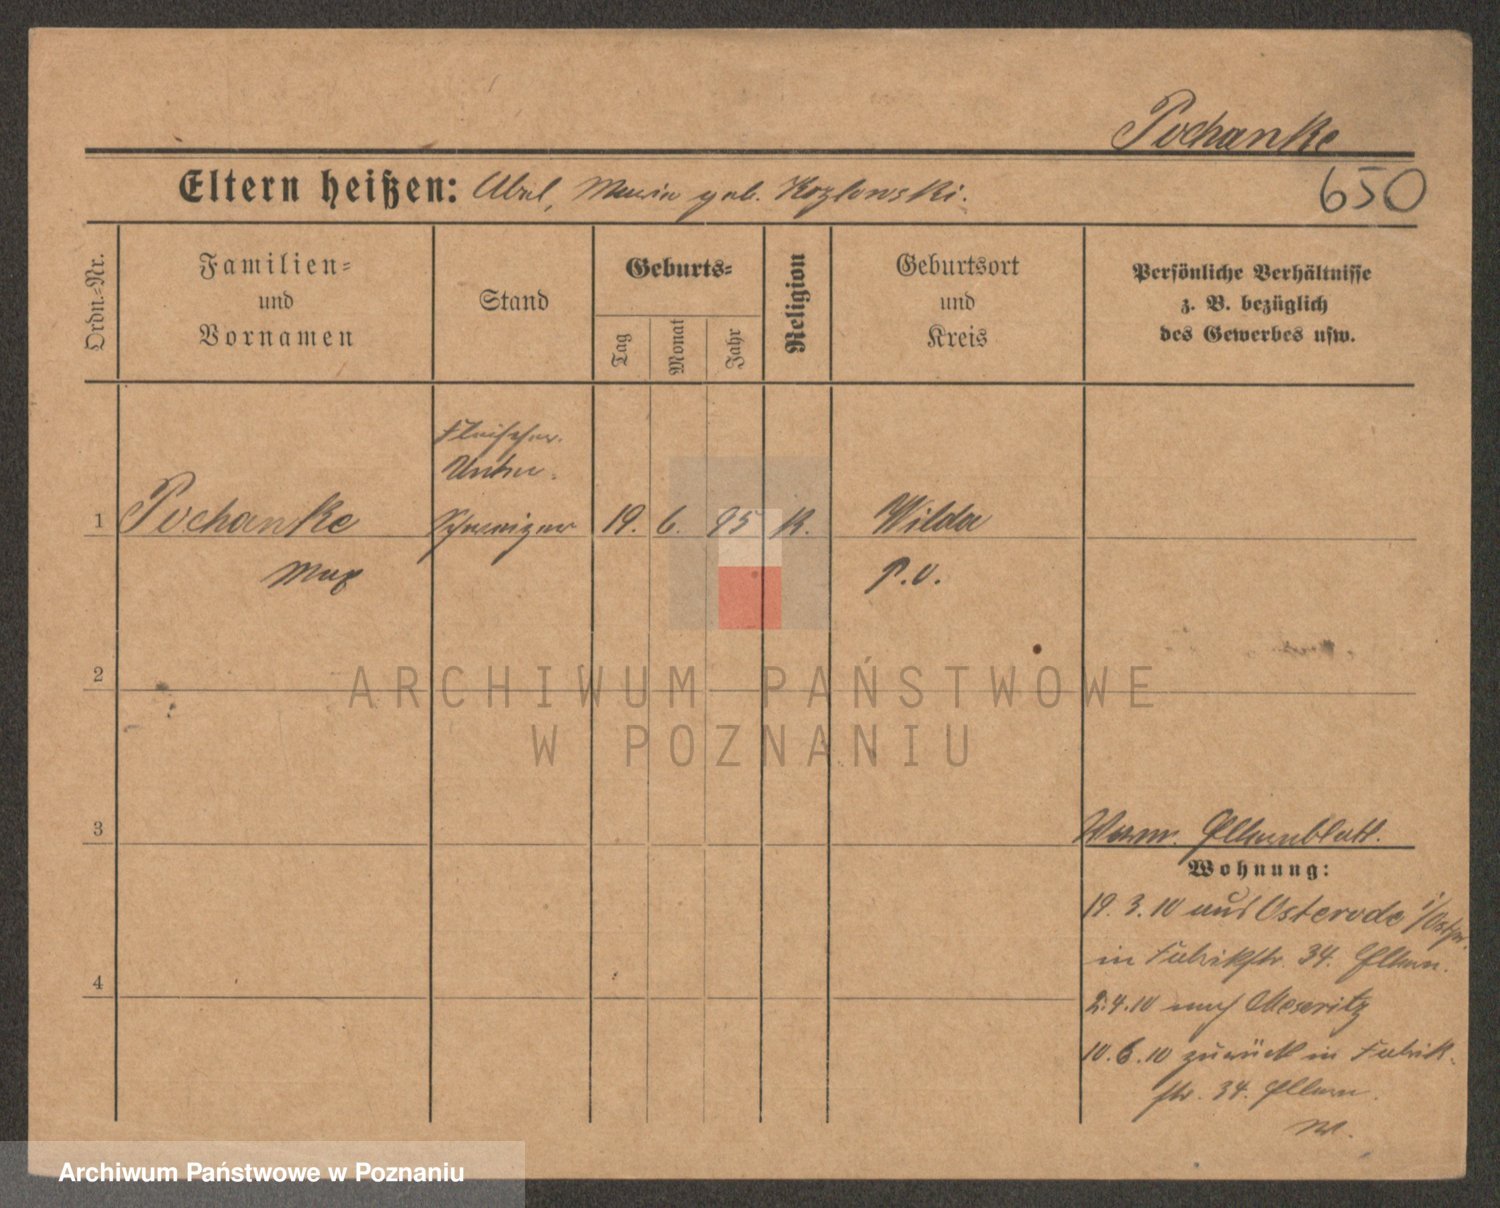 Pochanke
Eltern heißen: Abel, Maria geb. Kozlowski.
650
Ordn.-Nr.
Familien-
und
Vornamen
Stand
Geburts-
Tag
Monat
Jahr
Religion
Geburtsort
und
Kreis
Persönliche Verhältnisse
z. B. bezüglich
des Gewerbes usw.
Fleischer.
Unter-
1 Pochanke Schweizer 19. 6. 95 K. Wilda
Max P.O.
2
ARCHIWUM PAŃSTWOWE
W POZNANIU
3
Elternblatt.
Wohnung:
19. 3. 10 aus Osterode i/Ostpr.
in Fabrikstr. 34. Eltern.
4
2.4.10 nach Meseritz
10. 6. 10 zurück in Fabrik-
str. 34. Eltern.
Archiwum Państwowe w Poznaniu